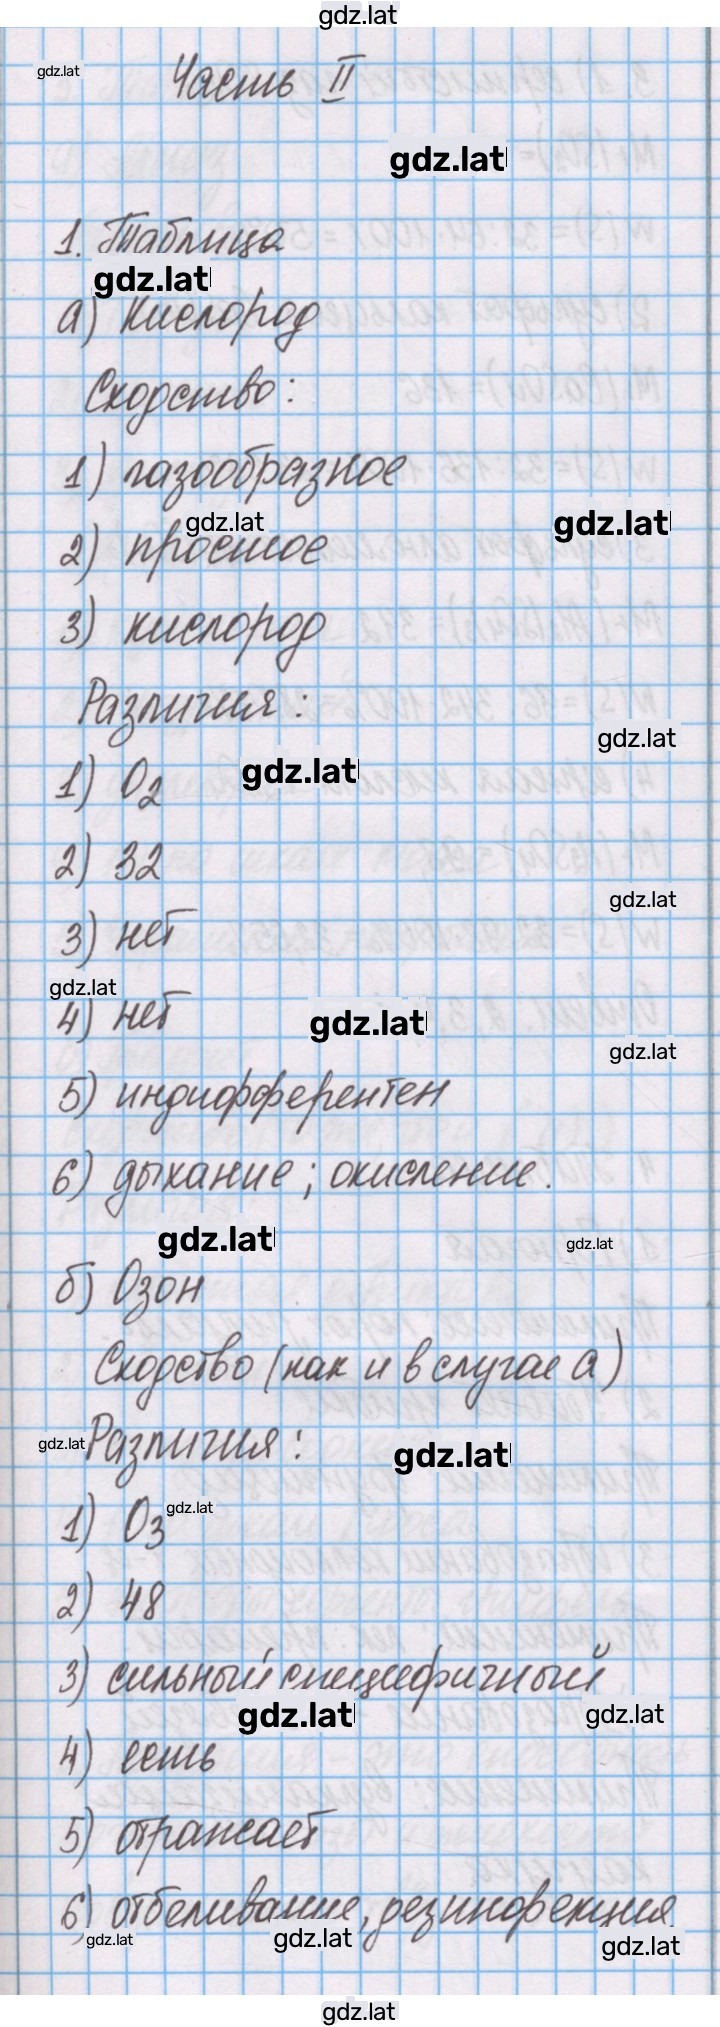 gdz.lat
gdz.lat
Часть II
gdz.lat
1. Таблица
gdz.lat
а) кислород
Сходство:
1) газообразное
gdz.lat
gdz.lat
2) простое
3) кислород
Различия:
gdz.lat
gdz.lat
1) O2
2) 32
gdz.lat
3) нет
gdz.lat
4) нет
gdz.lat
gdz.lat
5) индифферентен
6) дыхание; окисление.
gdz.lat
gdz.lat
б) Озон
Сходство (как и в случае а)
gdz.lat
Различия:
gdz.lat
gdz.lat
1) O3
2) 48
3) сильный специфичный
gdz.lat
gdz.lat
4) есть
5) отражает
6) отбеливание, дезинфекция
gdz.lat
gdz.lat
gdz.lat
gdz.lat